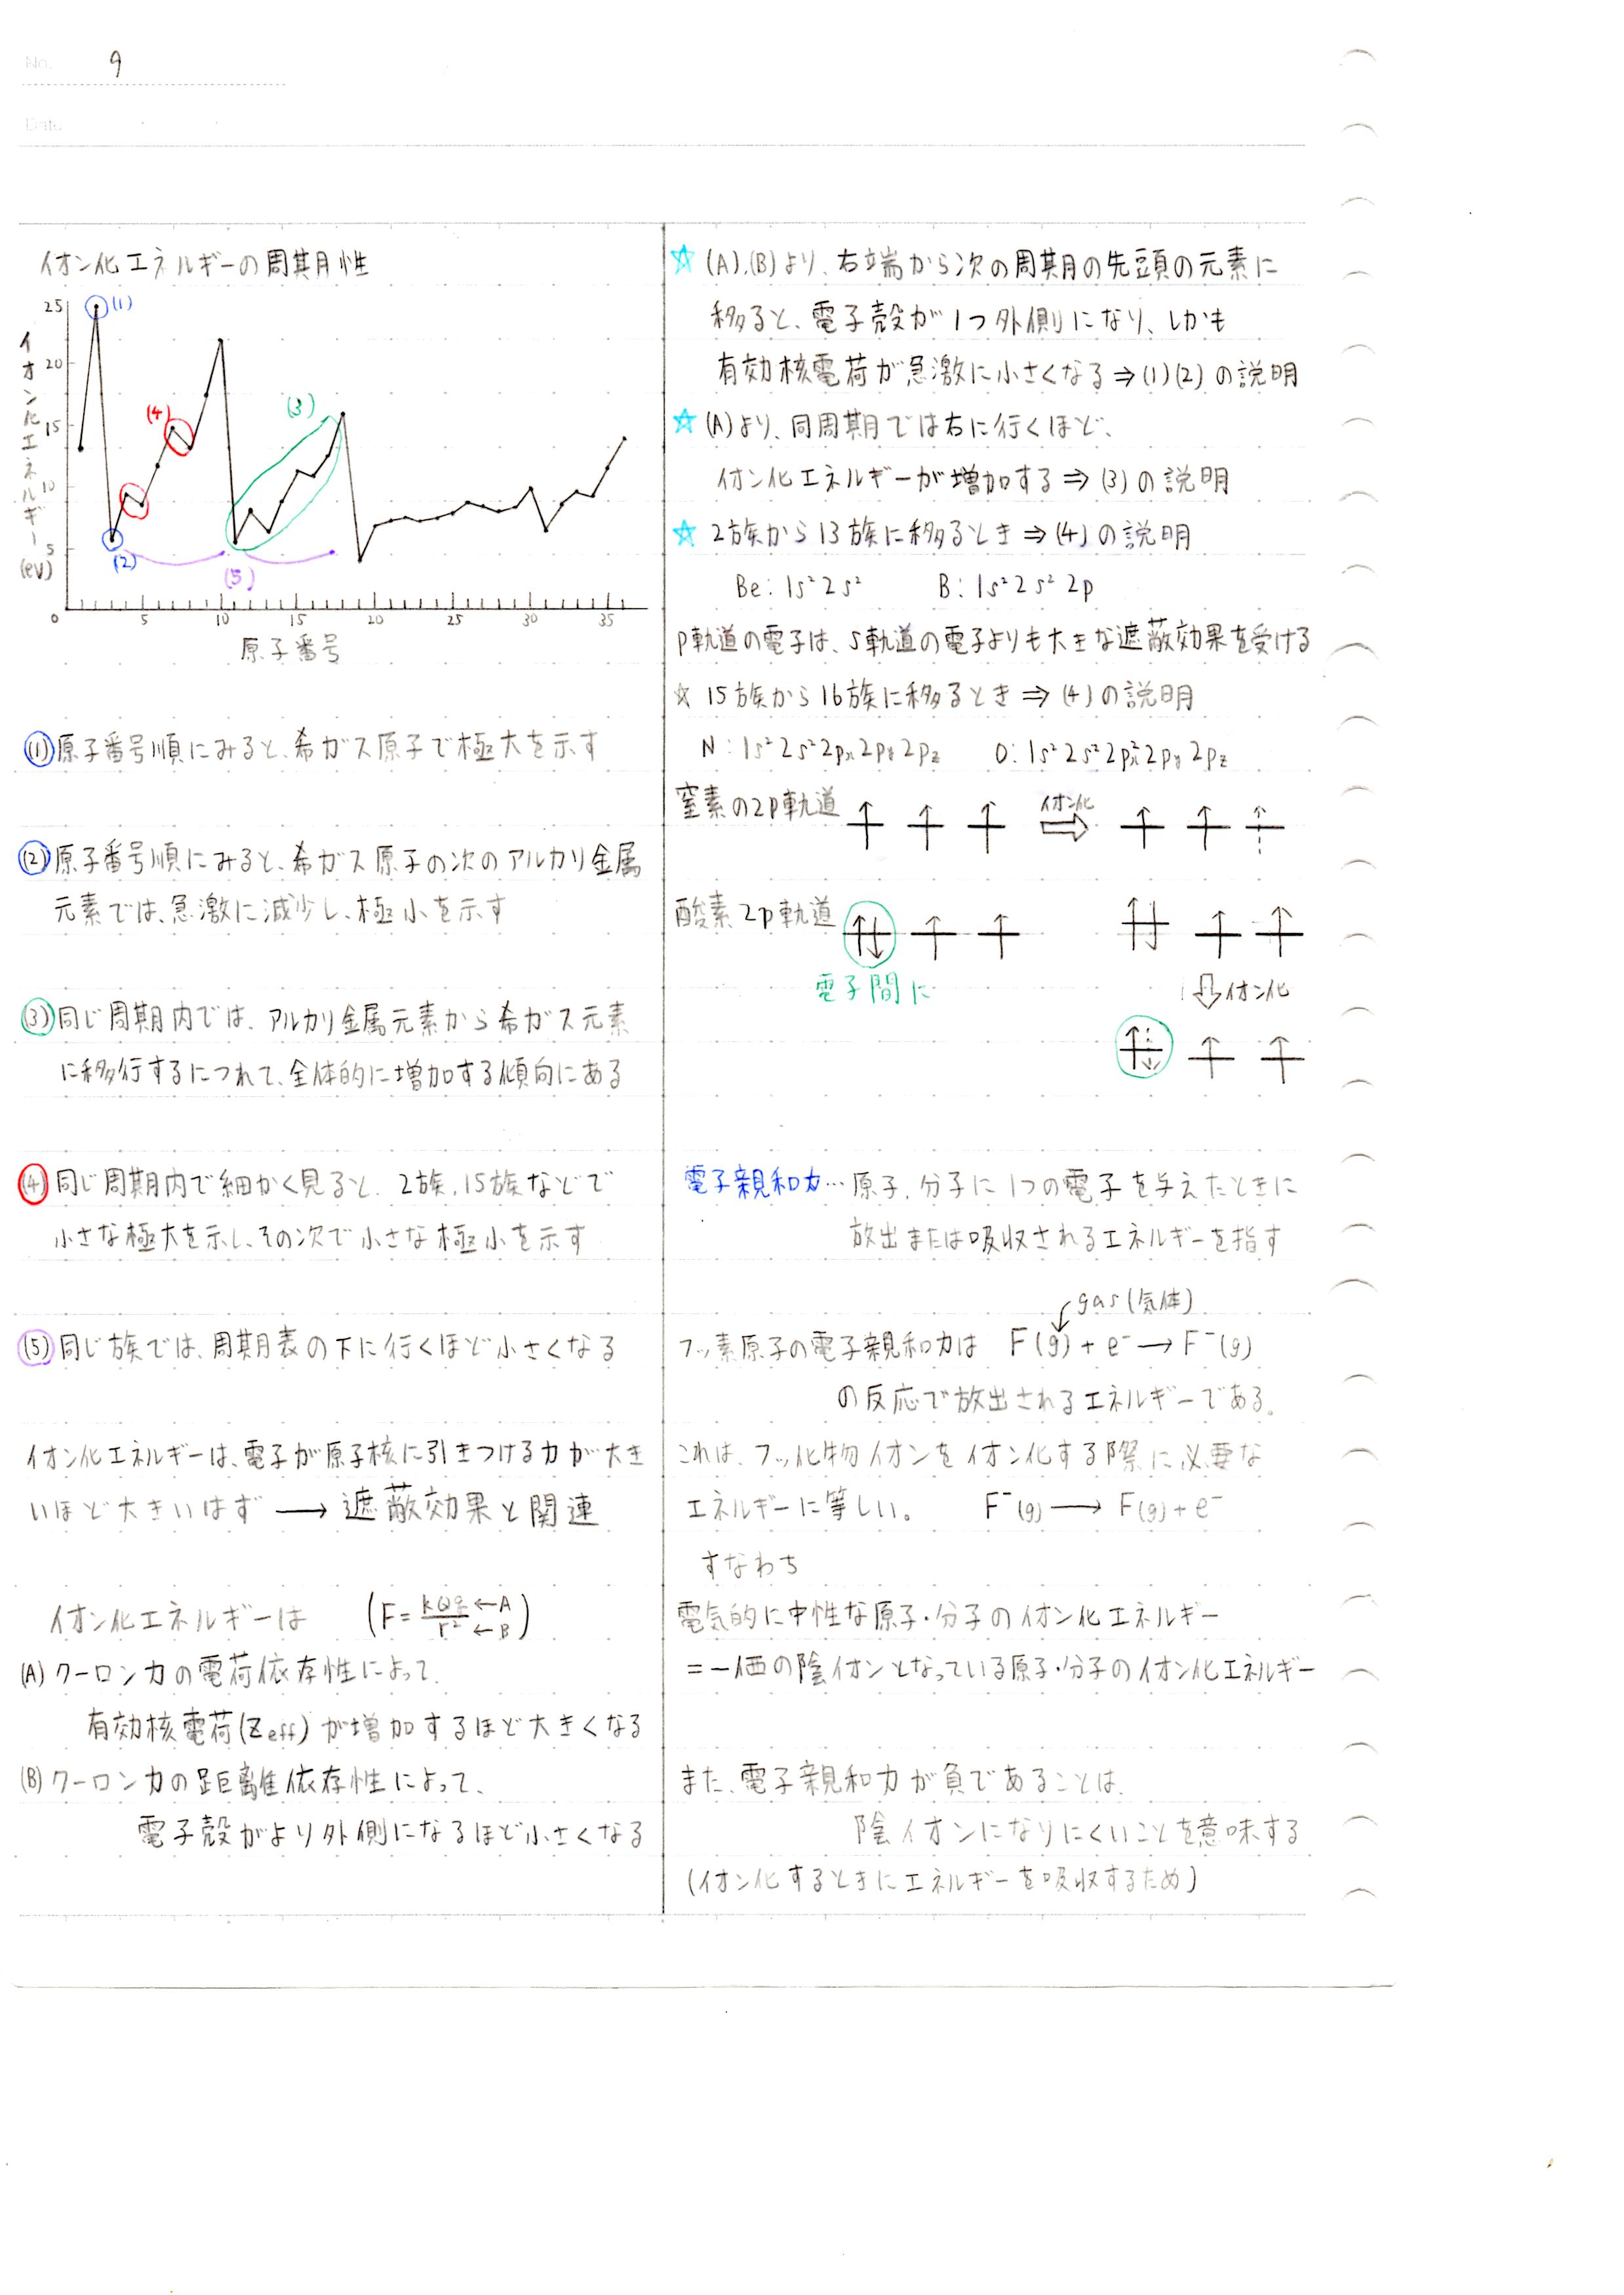 No. 9
Date
イオン化エネルギーの周期性
25
20
15
10
5
0
イオン化エネルギー(eV)
(1)
(2)
(3)
(4)
(5)
5 10 15 20 25 30 35
原子番号
(1) 原子番号順にみると、希ガス原子で極大を示す
(2) 原子番号順にみると、希ガス原子の次のアルカリ金属
元素では、急激に減少し、極小を示す
(3) 同じ周期内では、アルカリ金属元素から希ガス元素
に移行するにつれて、全体的に増加する傾向にある
(4) 同じ周期内で細かく見ると、2族、15族などで
小さな極大を示し、その次で小さな極小を示す
(5) 同じ族では、周期表の下に行くほど小さくなる
イオン化エネルギーは、電子が原子核に引きつける力が大き
いほど大きいはず → 遮蔽効果と関連
イオン化エネルギーは (F=kQq/r² ←A ←B)
(A) クーロン力の電荷依存性によって、
有効核電荷(Zeff)が増加するほど大きくなる
(B) クーロン力の距離依存性によって、
電子殻がより外側になるほど小さくなる
☆ (A),(B)より、右端から次の周期の先頭の元素に
移ると、電子殻が1つ外側になり、しかも
有効核電荷が急激に小さくなる⇒(1)(2)の説明
☆ (A)より、同周期では右に行くほど、
イオン化エネルギーが増加する⇒(3)の説明
☆ 2族から13族に移るとき⇒(4)の説明
Be: 1s²2s² B: 1s²2s²2p
p軌道の電子は、s軌道の電子よりも大きな遮蔽効果を受ける
☆ 15族から16族に移るとき⇒(4)の説明
N: 1s²2s²2px2py2pz O: 1s²2s²2px²2py2pz
窒素の2p軌道 イオン化
酸素2p軌道
電子間に
イオン化
電子親和力…原子、分子に1つの電子を与えたときに
放出または吸収されるエネルギーを指す
gas(気体)
フッ素原子の電子親和力は F(g)+e⁻→F⁻(g)
の反応で放出されるエネルギーである。
これは、フッ化物イオンをイオン化する際に必要な
エネルギーに等しい。 F⁻(g)→F(g)+e⁻
すなわち
電気的に中性な原子・分子のイオン化エネルギー
=一価の陰イオンとなっている原子・分子のイオン化エネルギー
また、電子親和力が負であることは、
陰イオンになりにくいことを意味する
(イオン化するときにエネルギーを吸収するため)